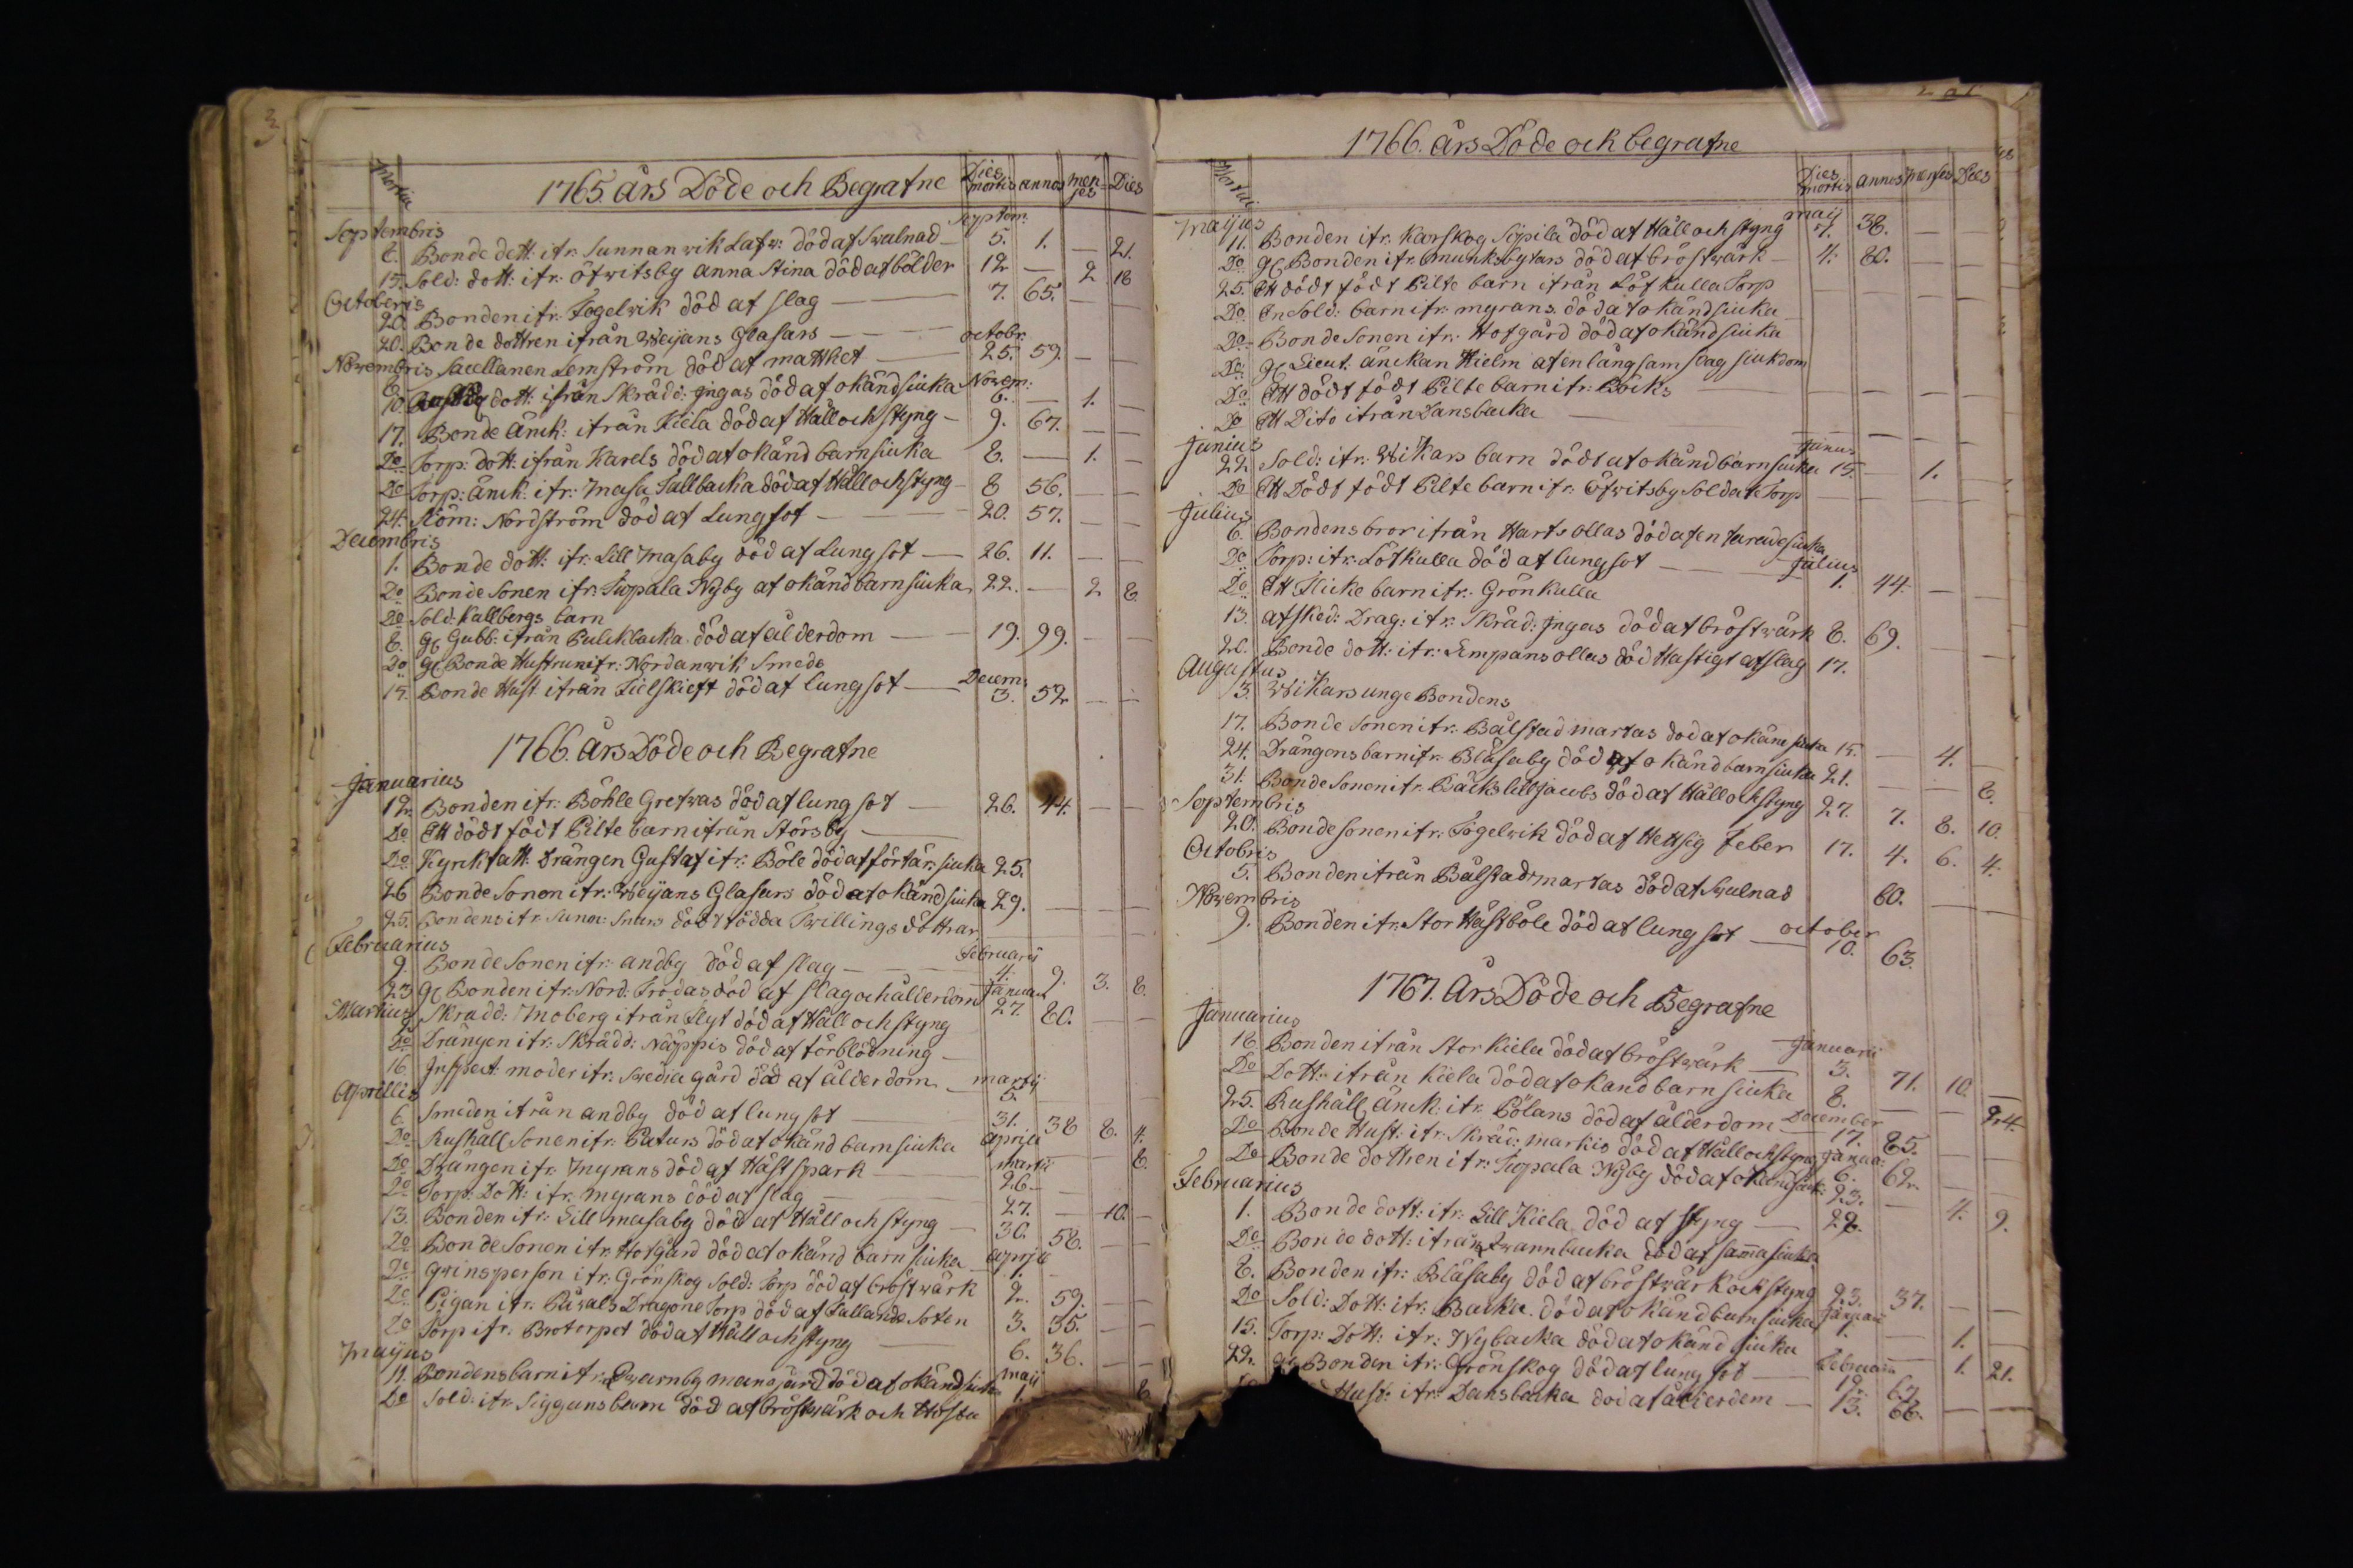 1765. års Döde och Begrafne Dies mortis annos menses Dies
Septembris Septem:
8. Bonde dott: ifr: Sunnanwik Lafw: död af Swalnad — 5. 1. — 21.
15. Sold: dott: ifr: Öfwitsby Anna Stina död af bölder 12 — 2 18
Octobris
20. Bonden ifr: Fogelwik död af slag — 7. 65. —
20. Bonde dottren ifrån Weijans Glasars — —
Novembris Sacellanen Lemström död af matthet — octobr. 25. 59. — —
10. dott: ifrån Skrädd: Ingas död af okänd siuka Novem: 6. — 1. —
17. Bonde Änck: ifrån Kiela död af Håll och Styng — 9. 67. — —
Do Torp: dott: ifrån Karels död af okänd barnsiuka 8. — 1. —
Do Torp: Änck: ifr: Masa Tallbacka död af Håll och Styng — 8 56. — —
24. Nordström död af Lungsot — 20. 57. — —
Decembris
1. Bonde dott: ifr: Lill Masaby död af Lungsot — 26. 11. — —
Do Bonde Sonen ifr: Topala Nyby af okänd barnsiuka 22. — 2 8.
Do Sold: Kallbergs barn
8. Gl Gubb: ifrån Backa död af ålderdom — 19. 99. — —
Do Gl Bonde Hustrun ifr: Nordanwik Smeds
15. Bonde Hust ifrån Sielskieft död af lungsot — Decem: 3. 52 — —
1766. års Döde och Begrafne
Januarius
12. Bonden ifr: Böhle Grefwas död af lungsot — 26. 44. — —
Do Ett dödt födt Pilte barn ifrån Störsby —
Do Kyrkfatt: Drängen Gustaf ifr: Böle död af förtär: siuka 25.
26 Bonde Sonen ifr: Weijans Glasars död af okänd siuka 29. — — —
25. Bondens ifr: Suna: Snars dödt födda Twillings döttrar
Februarius Februarii
9. Bonde Sonen ifr: andby död af slag — 4. 9. 3. 8.
23 Gl Bonden ifr: Nord: Frödas död af slag och ålderdom Januar: 27. 80. — —
Martius Skrädd: Moberg ifrån Flyt död af Håll och styng
Do Drängen ifr: Skrädd: Näppis död af förblödning —
16. Inspect: moder ifr: Swedia gård död af ålderdom — martij 5.
Aprillis
6. Smeden ifrån andby död af lungsot — 31. 38 8. 4.
Do Rushåll Sonen ifr: Paturs död af okänd barnsiuka Aprill — — 8.
Do Drängen ifr: Myrans död af Häst spark — martii 26 —
Do Torp: Dott: ifr: myrans död af slag — 27. — 10. —
13. Bonden ifr: Lill masaby död af Håll och styng — 30. 58. — —
Do Bonde Sonen ifr: Hofgård död af okänd barnsiuka Aprill 1. —
Do Qwinsperson ifr: Grönskog Sold: Torp död af bröstwärk 2. 59. — —
Do Pigan ifr: Päwals Dragone Torp död af Fallande Soten 3. 35. — —
Do Torp ifr: Brotorpet död af Håll och styng — 6. 36. — —
Maijus maij
11. Bondens barn ifr: Qwarnby mansgärd död af okänd siuka 1. 8.
Do Sold: ifr: Siggans barn död af bröstwärk och Hosta
1766. års Döde och begrafne
Dies mortis annos Menses Dies
Maijus maij
11. Bonden ifr: Karskog Sipila död af Håll och styng 7. 38. — —
Do Gl Bonden ifr: Munksby lars död af bröstwärk — 4. 80. — —
25. Ett dödt födt Pilte barn ifrån Löfkulla Torp
Do En Sold: barn ifr: myrans död af okänd siuka — — —
Do Bonde Sonen ifr: Hofgård död af okänd siuka
Do Gl Lieut: änckan Hielm af en långsam slag siukdom
Do Ett dödt födt Pilte barn ifr: Böcks — — —
Do Ett Dito ifrån Dansbacka —
Junius Junius
22. Sold: ifr: Wikars barn dödt af okänd barnsiuka 15. — 1.
Do Ett Dödt födt Pilte barn ifr: Öfwitsby Soldate Torp — — —
Julius
6. Bondens bror ifrån Harts ollas död af en tärande siuka
Do Torp: ifr: Löfkulla död af lungsot — Julius 1. 44. — —
Do Ett Flicke barn ifr: Grönkulla
13. afsked: Drag: ifr: Skräd: Ingas död af bröstwärk 8. 69. — —
20. Bonde dott: ifr: Simpans ollas död Hastigt af slag 17.
Augustus
3. Wikars unge Bondens
17. Bonde Sonen ifr: Bålstad martas död af okänd siuka 15. — 4. —
24. Drängens barn ifr: Blåsaby död af okänd barnsiuka 21. — — 8.
31. Bonde Sonen ifr: Bäcks lilljacobs död af Håll och styng 27. 7. 8. 10.
Septembris
20. Bonde sonen ifr: Fogelwik död af Hettsig Feber 17. 4. 6. 4.
Octobris
5. Bonden ifrån Bålstad martas död af Swalnad 60. — —
Novembris
9. Bonden ifr: Stor Hästböle död af lungsot — october 10. 63.
1767. Års Döde och Begrafne
Januarius
18. Bonden ifrån Stor Kiela död af bröstwärk — Januarii 3. 71. 10. —
Do Dott: ifrån Kiela död af okänd barnsiuka 8. — — 24.
25. Rushåll Änck: ifr: Pölans död af ålderdom December 17. 85. — —
Do Bonde Hust: ifr: Skräd: markis död af Håll och styng Janua: 6. 62. — —
Do Bonde dottren ifr: Topala Nyby död af okänd siuk: 23. — 4. 9.
Februarius
1. Bonde dott: ifr: Lill Kiela död af styng — 22.
Do Bonde dott: ifrån Qwarnbacka död af samma siuka
8. Bonden ifr: Blåsaby död af bröstwärk och styng 23. 37. — —
Do Sold: Dott: ifr: Backa död af okänd barnsiuka Januarii 1. — 1. —
15. Torp: Dott: ifr: Nybacka död af okänd siuka — 1. 21.
22. Gl Bonden ifr: Grönskog död af lungsot — Februarii 19. 67. — —
Hust: ifr: Dansbacka död af ålderdom — 13. 66. — —